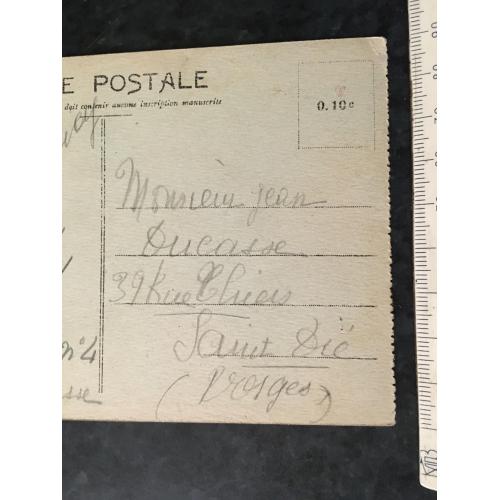 E POSTALE
doit contenir aucune inscription manuscrite
0.10c
Monsieur Jean
Ducasse
39 Rue Thiers
Saint Dié
(Vosges)
n°4
sse